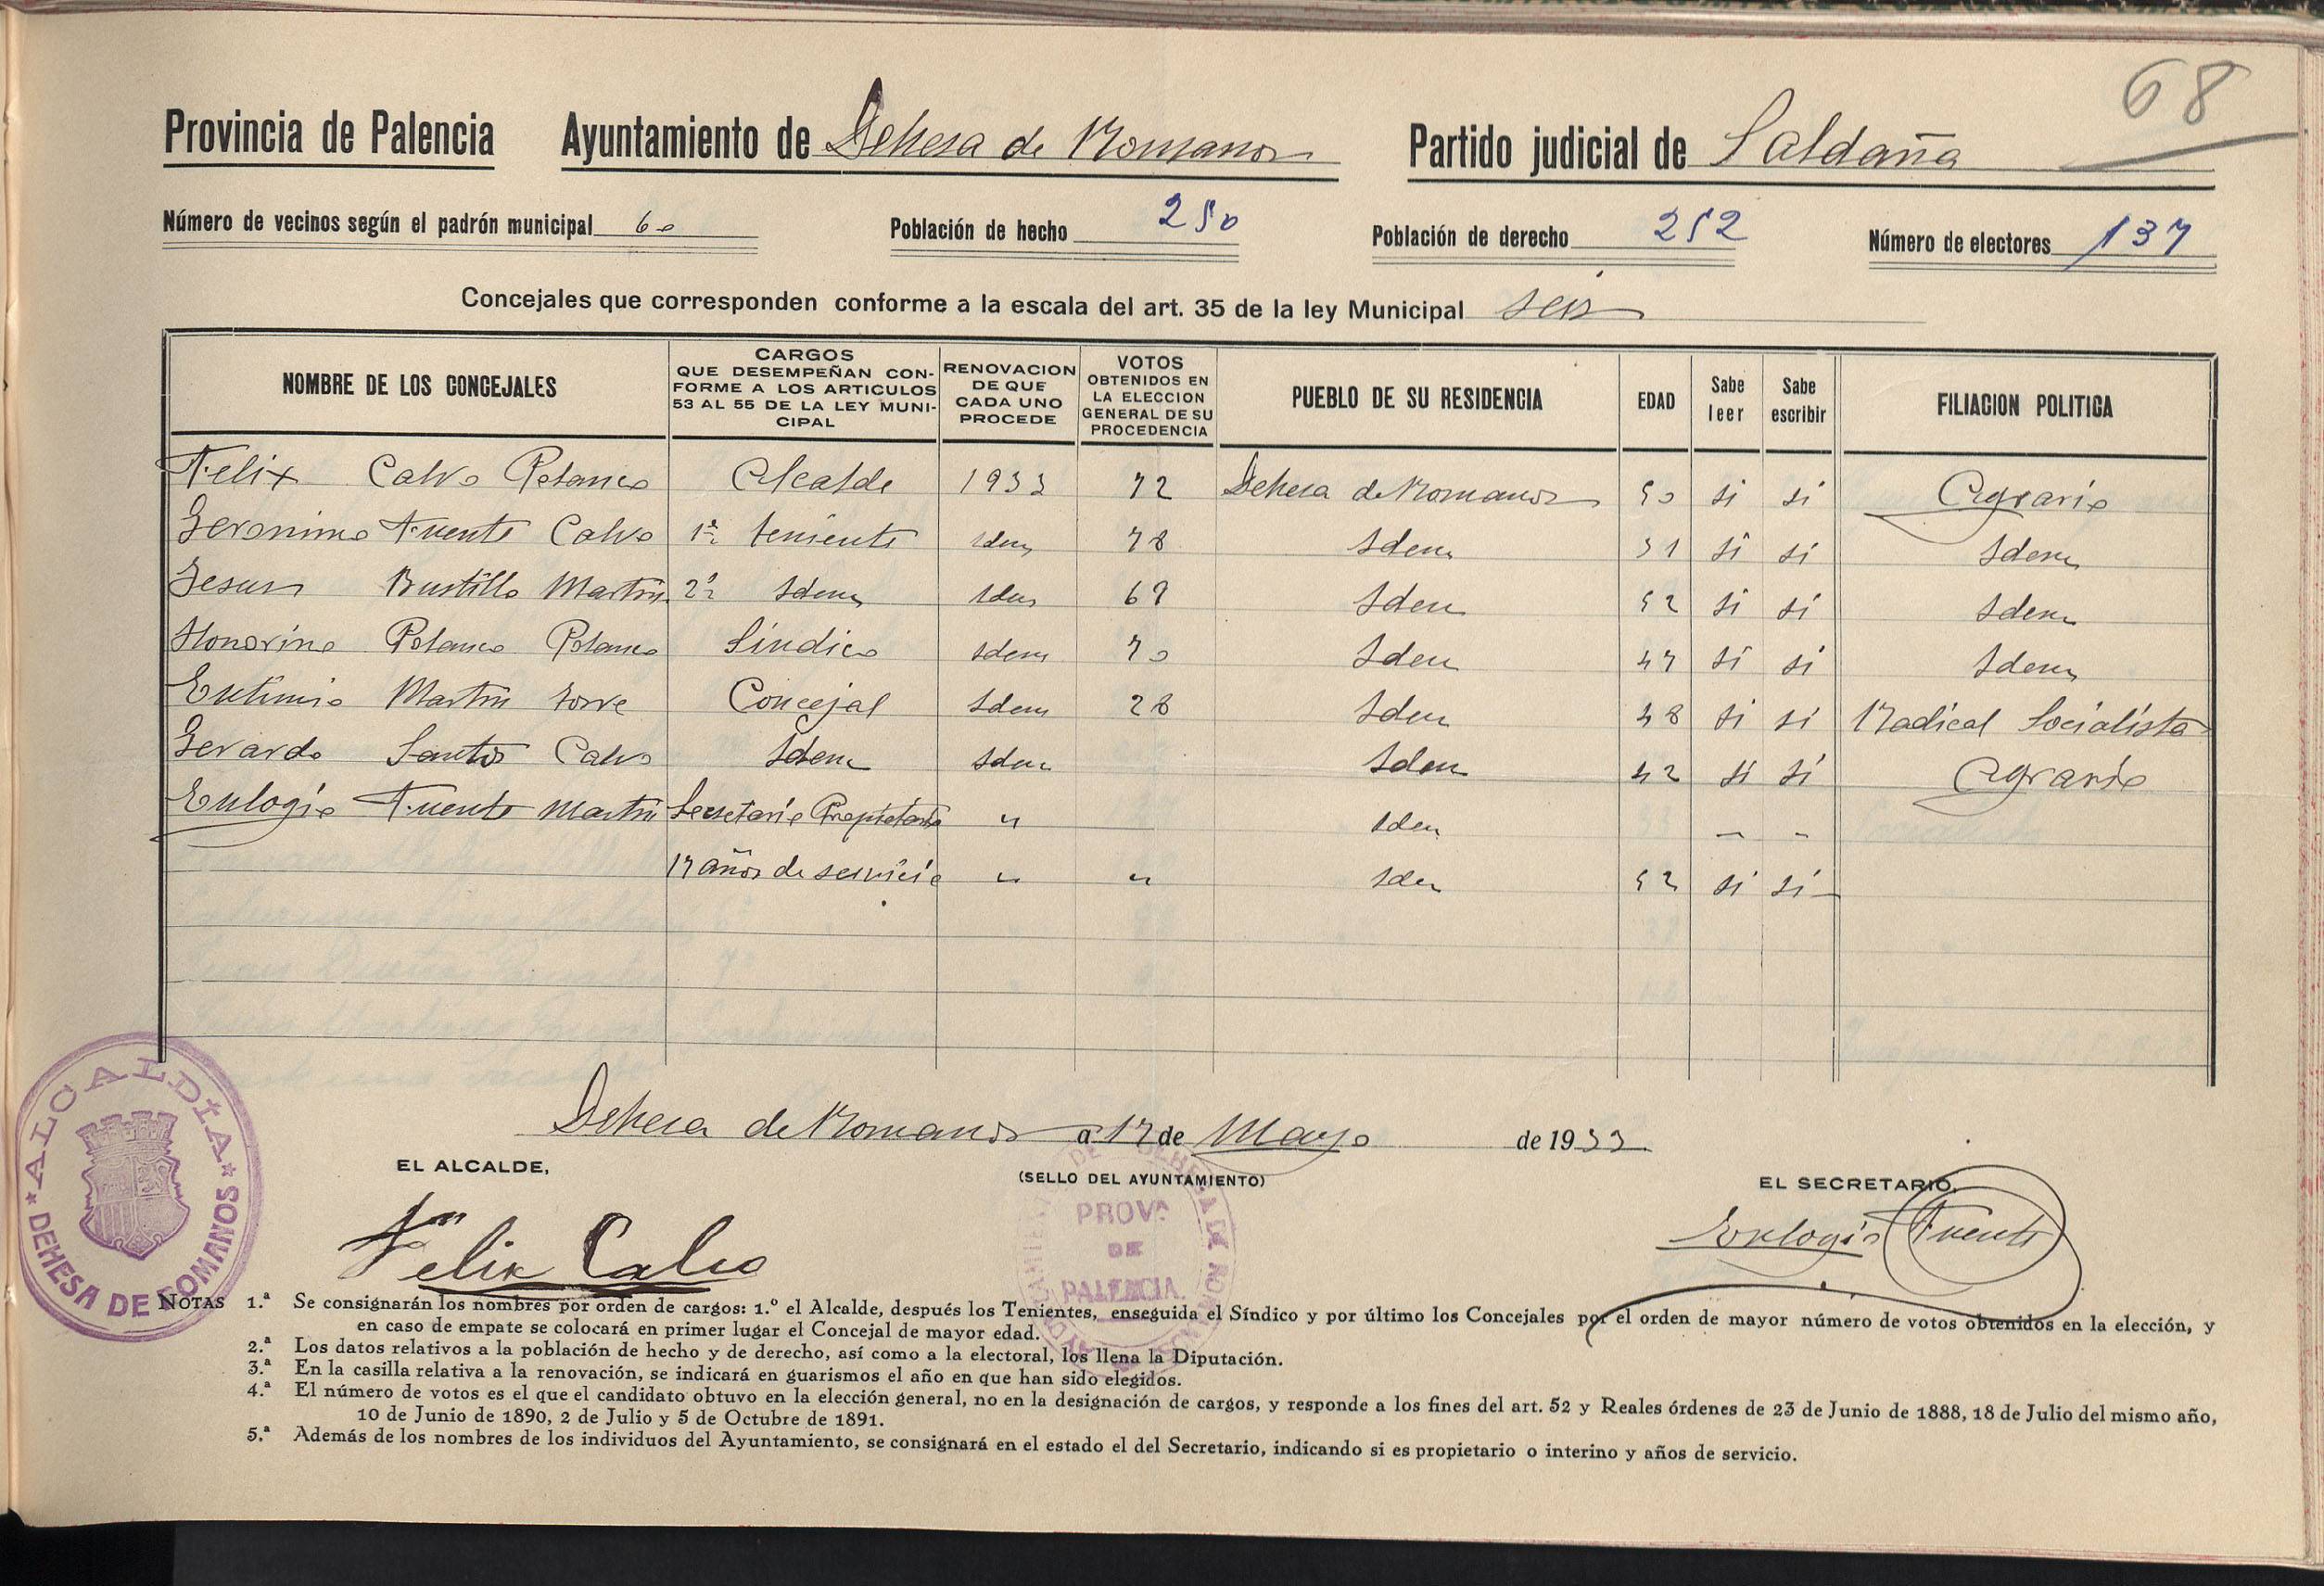 68
Provincia de Palencia Ayuntamiento de Dehesa de Romanos Partido judicial de Saldaña
Número de vecinos según el padrón municipal 60 Población de hecho 250 Población de derecho 252 Número de electores 137
Concejales que corresponden conforme a la escala del art. 35 de la ley Municipal seis
NOMBRE DE LOS CONCEJALES CARGOS QUE DESEMPEÑAN CONFORME A LOS ARTICULOS 53 AL 55 DE LA LEY MUNICIPAL RENOVACION DE QUE CADA UNO PROCEDE VOTOS OBTENIDOS EN LA ELECCION GENERAL DE SU PROCEDENCIA PUEBLO DE SU RESIDENCIA EDAD Sabe leer Sabe escribir FILIACION POLITICA
Felix Calvo Polanco Alcalde 1933 72 Dehesa de Romanos 50 si si Agrario
Geronimo Fuente Calvo 1er teniente Idem 78 Idem 31 si si Idem
Jesus Bustillo Martin 2º Idem Idem 69 Idem 52 si si Idem
Honorino Polanco Polanco Sindico Idem 70 Idem 47 si si Idem
Eutimio Martin torre Concejal Idem 28 Idem 48 si si Radical Socialista
Gerardo Santos Calvo Idem Idem Idem 42 si si Agrario
Eulogio Fuente Martin Secretario Propietario " Idem — -
17 años de servicio " " Iden 52 si si
Dehesa de Romanos a 17 de Mayo de 1933
EL ALCALDE, (SELLO DEL AYUNTAMIENTO) EL SECRETARIO,
Felix Calvo Eulogio Fuente
ALCALDIA
DEHESA DE ROMANOS
PROVª
DE
PALENCIA
NOTAS 1.ª Se consignarán los nombres por orden de cargos: 1.º el Alcalde, después los Tenientes, enseguida el Síndico y por último los Concejales por el orden de mayor número de votos obtenidos en la elección, y
en caso de empate se colocará en primer lugar el Concejal de mayor edad.
2.ª Los datos relativos a la población de hecho y de derecho, así como a la electoral, los llena la Diputación.
3.ª En la casilla relativa a la renovación, se indicará en guarismos el año en que han sido elegidos.
4.ª El número de votos es el que el candidato obtuvo en la elección general, no en la designación de cargos, y responde a los fines del art. 52 y Reales órdenes de 23 de Junio de 1888, 18 de Julio del mismo año,
10 de Junio de 1890, 2 de Julio y 5 de Octubre de 1891.
5.ª Además de los nombres de los individuos del Ayuntamiento, se consignará en el estado el del Secretario, indicando si es propietario o interino y años de servicio.